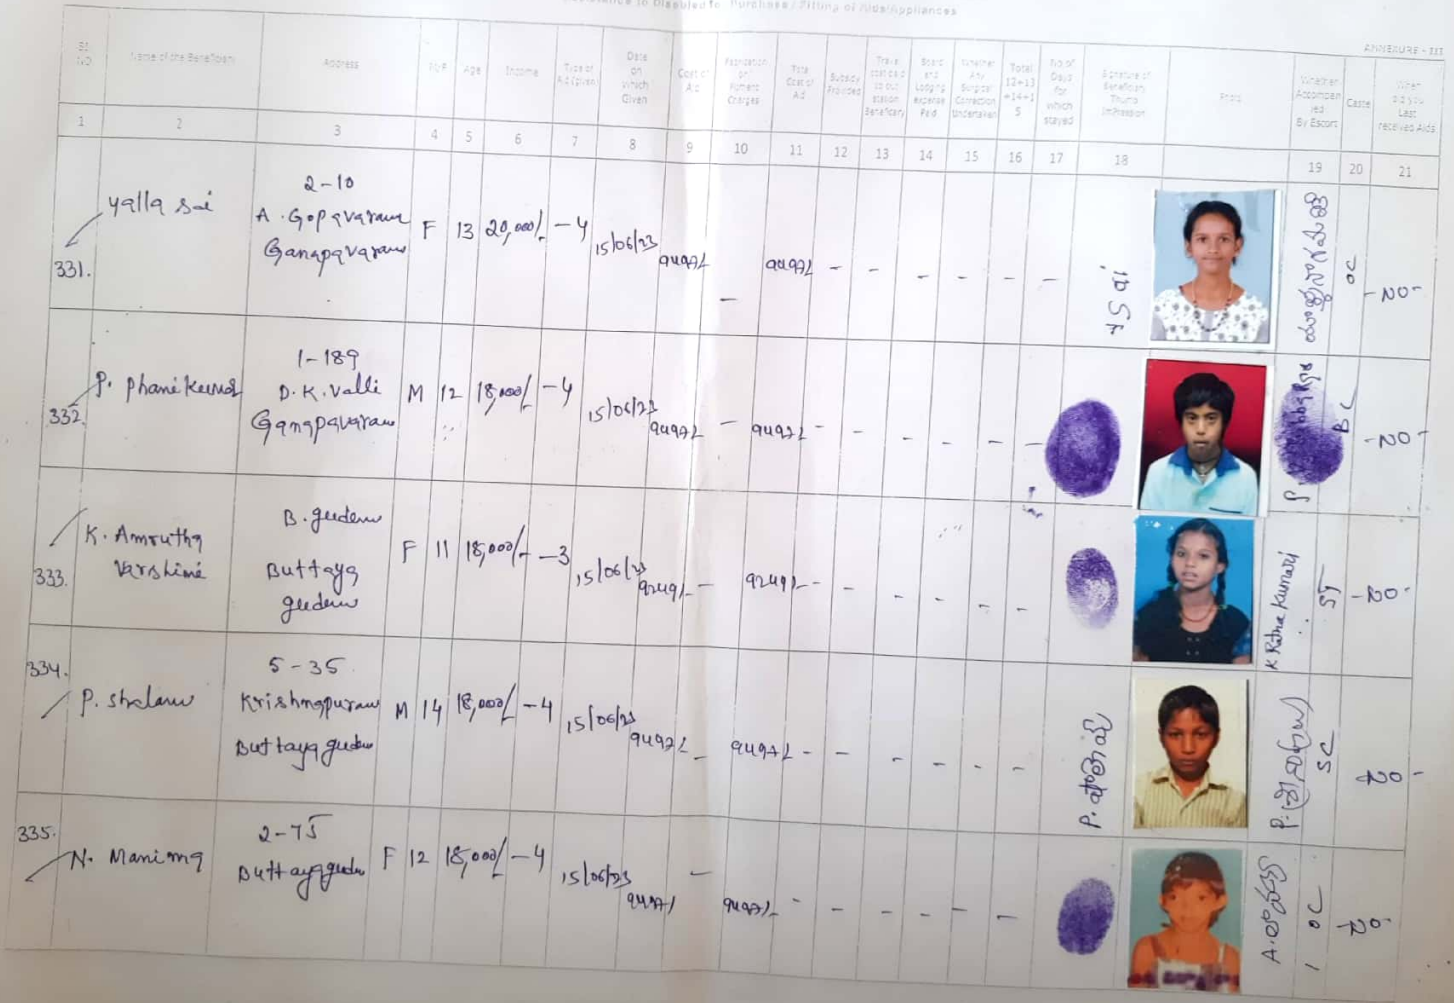 Purchase / Fitting of Aids/Appliances
ANNEXURE - III
Sl. NO
Name of the Beneficiary
Address
M/F
Age
Income
Type of Aid (given)
Date on which Given
Cost of Aid
Total Cost of Aid
Subsidy Provided
Board and Lodging expense Paid
Whether Any Surgical Correction Undertaken
Total 12+13+14+15
No of Days for which stayed
Signature of Beneficiary Thumb Impression
Photo
Whether Accompanied By Escort
Caste
When did you Last received Aids
1 2 3 4 5 6 7 8 9 10 11 12 13 14 15 16 17 18 19 20 21
331. Yalla Sai 2-10 A. Gopavaram Ganapavaram F 13 20,000/- -4 15/06/23 9497/- - 9497/- - - - - - - Y Sai OC -NO-
332. P. Phani Kumar 1-189 D.K. Valli Ganapavaram M 12 18,000/- -4 15/06/23 9497/- - 9497/- - - - - - - BC -NO-
333. K. Amrutha Varshini B. gudem Buttaya gudem F 11 18,000/- -3 15/06/23 9249/- - 9249/- - - - - - - K Ratna Kumari ST -NO-
334. P. 5-35 Krishnapuram Buttayagudem M 14 18,000/- -4 15/06/23 9497/- - 9497/- - - - - - - P. SC NO-
335. N. Manioma 2-75 Buttayagudem F 12 18,000/- -4 15/06/23 9497/- - 9497/- - - - - - - A. OC NO-